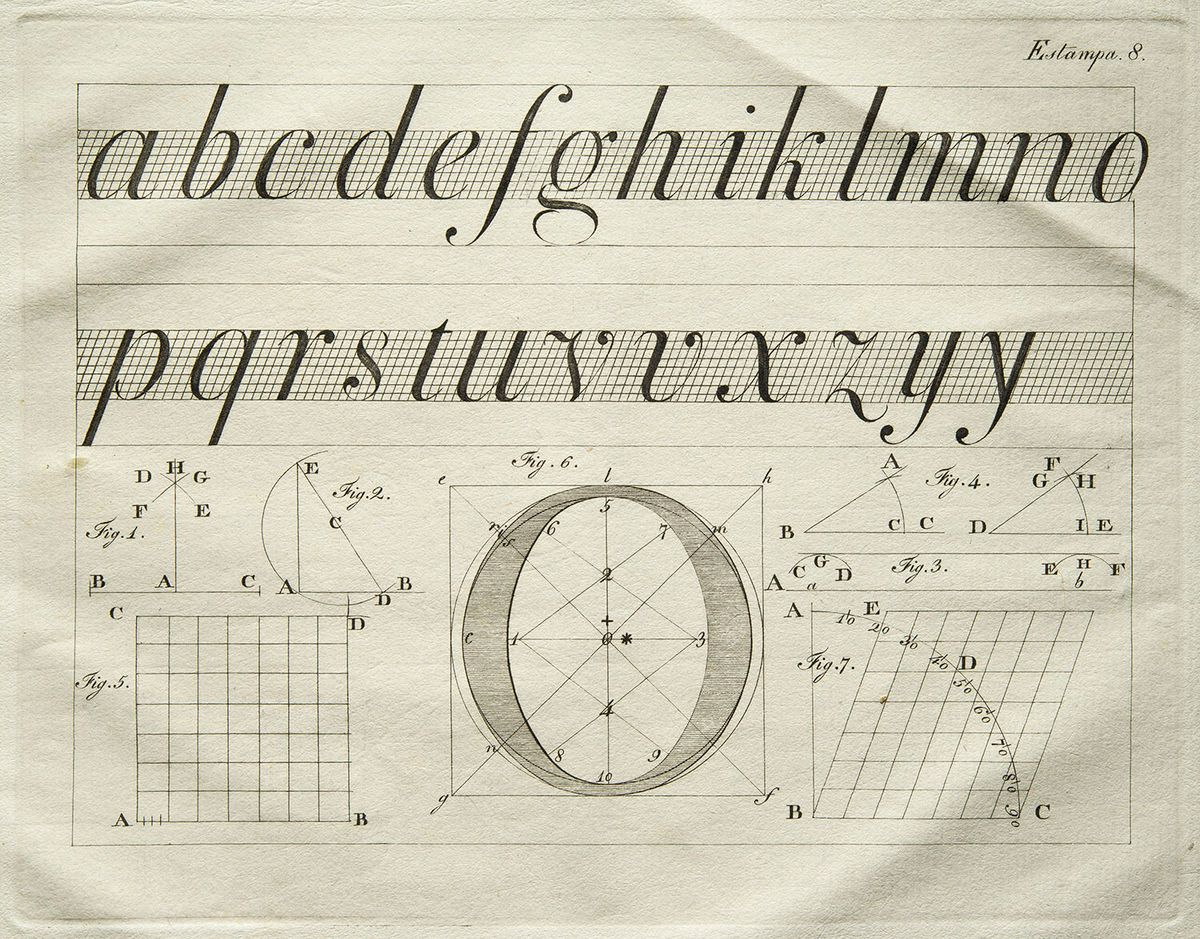 Estampa. 8.
a b c d e f g h i k l m n o
p q r s t u v v x z y y
Fig. 1.
D H G
F E
B A C
Fig. 2.
E
C
A D B
Fig. 6.
e l h
r i 5 m
s 6 7
2
+
c 1 0 * 3
4
n 8 9
10
g f
Fig. 4.
A
B C C
F
G H
D I E
Fig. 3.
A C G D
a
E H F
b
Fig. 5.
C D
A B
Fig. 7.
A E
10 20 30 40 D
50
60
70
80
90
B C